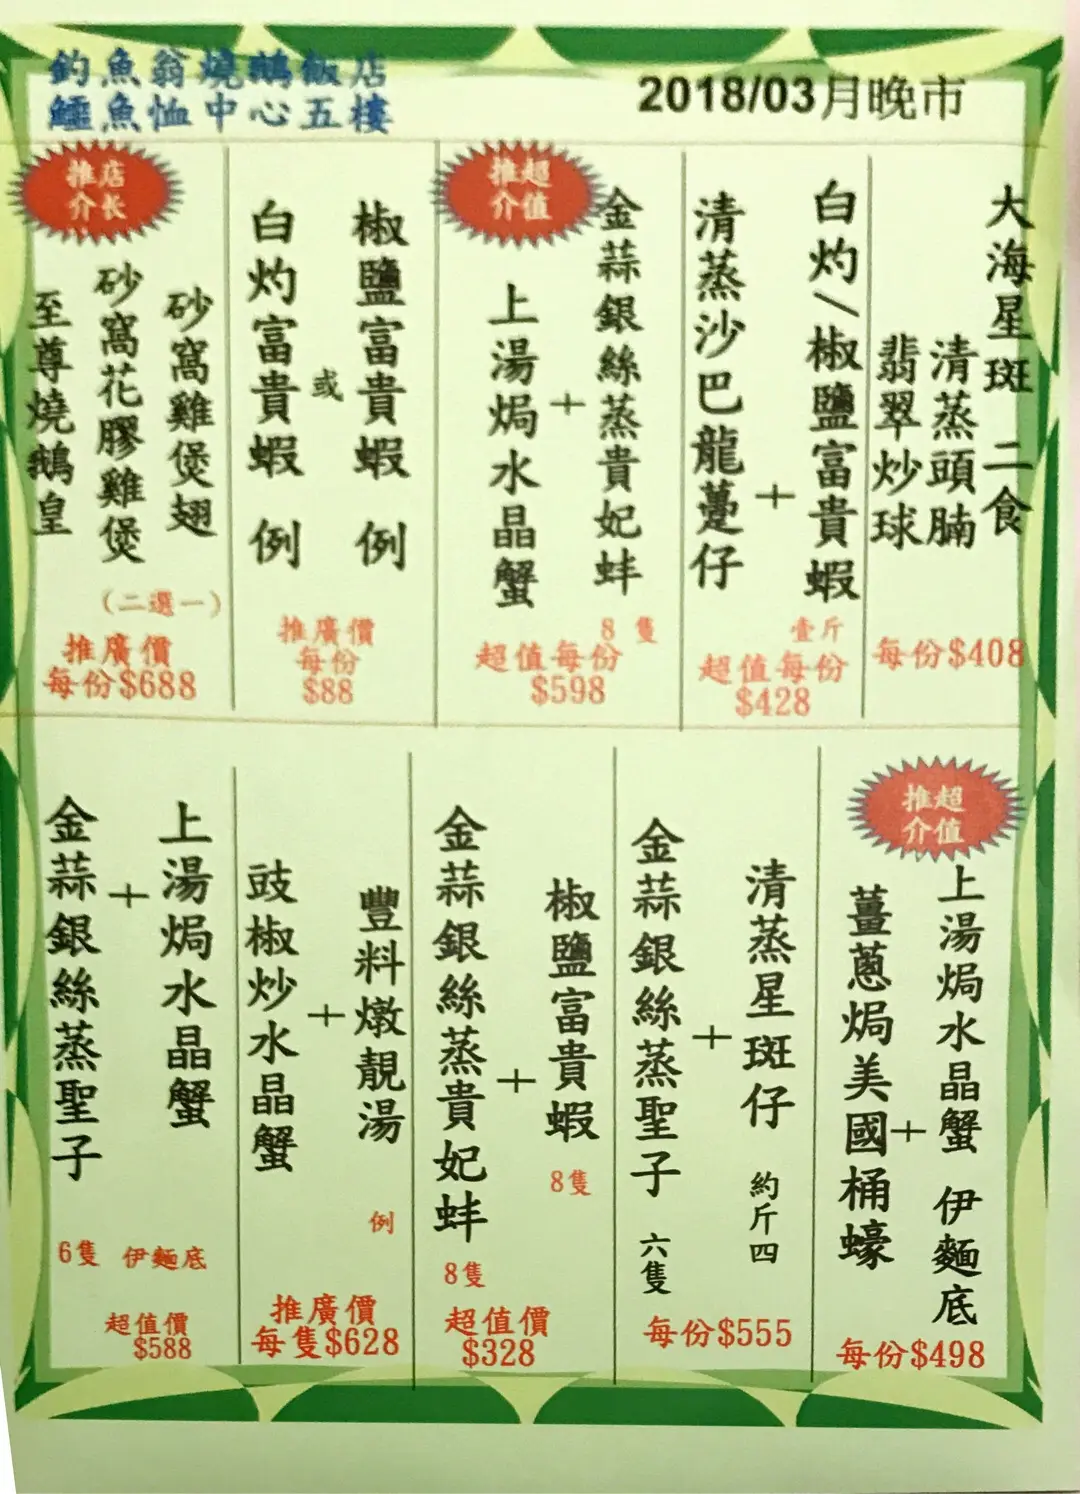 釣魚翁燒鵝飯店
鱷魚恤中心五樓
2018/03月晚市
大海星斑 二食
清蒸頭腩
翡翠炒球
每份$408
白灼/椒鹽富貴蝦
+
清蒸沙巴龍躉仔
壹斤
超值每份
$428
推超
介值
金蒜銀絲蒸貴妃蚌
+
上湯焗水晶蟹
8 隻
超值每份
$598
椒鹽富貴蝦 例
或
白灼富貴蝦 例
推廣價
每份
$88
推店
介长
砂窩雞煲翅
砂窩花膠雞煲
至尊燒鵝皇
(二選一)
推廣價
每份$688
推超
介值
上湯焗水晶蟹 伊麵底
+
薑蔥焗美國桶蠔
每份$498
清蒸星斑仔 約斤四
+
金蒜銀絲蒸聖子 六隻
每份$555
椒鹽富貴蝦
8隻
+
金蒜銀絲蒸貴妃蚌
8隻
超值價
$328
豐料燉靚湯
例
+
豉椒炒水晶蟹
推廣價
每隻$628
上湯焗水晶蟹
伊麵底
+
金蒜銀絲蒸聖子
6隻
超值價
$588